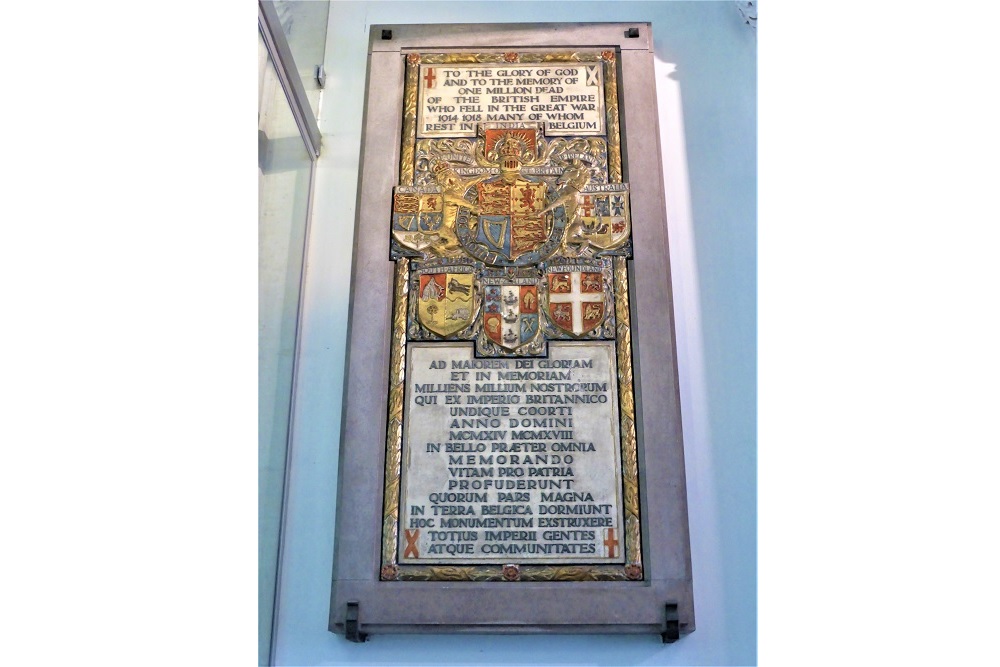 TO THE GLORY OF GOD
AND TO THE MEMORY OF
ONE MILLION DEAD
OF THE BRITISH EMPIRE
WHO FELL IN THE GREAT WAR
1914 1918 MANY OF WHOM
REST IN BELGIUM
INDIA
THE UNITED KINGDOM OF BRITAIN IRELAND
CANADA
AUSTRALIA
SOUTH AFRICA
NEW ZEALAND
NEWFOUNDLAND
AD MAIOREM DEI GLORIAM
ET IN MEMORIAM
MILLIENS MILLIUM NOSTRORUM
QUI EX IMPERIO BRITANNICO
UNDIQUE COORTI
ANNO DOMINI
MCMXIV MCMXVIII
IN BELLO PRÆTER OMNIA
MEMORANDO
VITAM PRO PATRIA
PROFUDERUNT
QUORUM PARS MAGNA
IN TERRA BELGICA DORMIUNT
HOC MONUMENTUM EXSTRUXERE
TOTIUS IMPERII GENTES
ATQUE COMMUNITATES